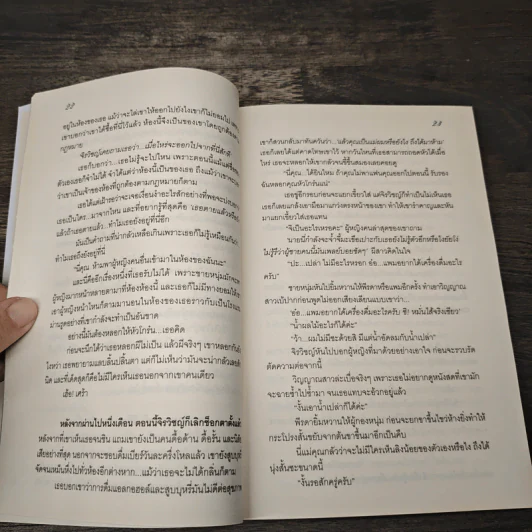 ๒๐
อยู่ในห้องของเธอ แม้ว่าจะไล่เขาให้ออกไปยังไงเขาก็ไม่ยอมไป
เขาบอกว่าเขาได้ซื้อที่นี่ไว้แล้ว ห้องนี้จึงเป็นของเขาโดยถูกต้องตาม
กฎหมาย
จิรวิชญ์โดยถามเธอว่า...เมื่อไหร่จะออกไปจากที่นี่สักที
เธอก็บอกว่า...เธอไม่รู้จะไปไหน เพราะตอนนี้แม้แต่ชื่อ
ตัวเองเธอก็จำไม่ได้ จำได้แต่ว่าห้องนี้เป็นของเธอ
ว่าเขาเป็นเจ้าของห้องที่ถูกต้องตามกฎหมายก็ตาม
เธอเป็นใคร...มาจากไหน และที่อยากรู้ที่สุดคือ
แล้วถ้าเธอตายแล้ว...ทำไมเธอยังอยู่ที่นี่อีก
มันเป็นคำถามที่น่ากลัวเหลือเกินเพราะเธอก็ไม่รู้เหมือนกันว่า
ทำไมเธอถึงยังอยู่ที่นี่
"นี่คุณ ห้ามพาผู้หญิงคนอื่นเข้ามาในห้องของฉันนะ"
และนี่คืออีกเรื่องหนึ่งที่เธอรับไม่ได้ เพราะชายหนุ่มมักจะ
ผู้หญิงมากหน้าหลายตามาที่ห้องห้องนี้ และเธอก็ไม่มีทางยอมให้
เขาผู้หญิงหน้าไหนก็ตามมานอนในห้องของเธอราวกับเป็นโรงแรม
ม่านรูดอย่างที่เขากำลังจะทำเป็นอันขาด
อย่างนี้มันต้องหลอกให้หัวโกร๋น...เธอคิด
ก่อนจะนึกได้ว่าเธอหลอกผีไม่เป็น แล้วผีจริงๆ เขาหลอกกันยัง
ไงหว่า เธอพยายามแลบลิ้นปลิ้นตา แต่ก็ไม่เห็นว่ามันจะน่ากลัวเลยสัก
นิด และที่เด็ดสุดก็คือไม่มีใครเห็นเธอนอกจากเขาคนเดียว
เฮ้อ! เศร้า
หลังจากผ่านไปหนึ่งเดือน ตอนนี้จิรวิชญ์ก็เลิกช็อกตาตั้งแล้ว
หลังจากที่เขาเห็นเธอจนชิน แถมเขายังเป็นคนดื้อด้าน ดื้อรั้น
เสียอย่างที่สุด นอกจากจะชอบดื่มเบียร์วันละครึ่งโหลแล้ว เขายังสูบ
จัดจนเหม็นหึ่งไปทั่วห้องอีกต่างหาก...แม้ว่าเธอจะไม่ได้กลิ่นก็ตาม
เธอบอกเขาว่าการดื่มแอลกอฮอล์และสูบบุหรี่มันไม่ดีต่อสุขภาพ
๒๑
เขาก็สวนกลับมาทันควันว่า...แล้วคุณเป็นแม่ผมหรือยังไง ถึงได้มาห้าม!
เธอก็เลยได้แต่คาดโทษเขาไว้ หากวันไหนที่เธอสามารถถอดหัวได้เมื่อ
ไหร่ เธอจะหลอกให้เขากลัวจนขี้ขึ้นสมองเลยคอยดู
"นี่คุณ...ได้ยินไหม ถ้าคุณไม่พาแฟนคุณออกไปตอนนี้ รับรอง
ฉันหลอกคุณหัวโกร๋นแน่"
เธอขู่อีกรอบก่อนจะแยกเขี้ยวใส่ แต่จิรวิชญ์ก็ทำเป็นไม่เห็นเธอ
เธอก็เลยแกล้งเขามือมาแกว่งตรงหน้าของเขา ทำให้เขารำคาญและหัน
มาแยกเขี้ยวใส่เธอแทน
"จีเป็นอะไรเหรอคะ" ผู้หญิงคนล่าสุดของเขาถาม
นายนี่กำลังจะจ้ำจี้มะเขือเปราะกับเธอยังไม่รู้ตัวอีกหรือไงยัยโง่
ไม่รู้รึว่าผู้ชายคนนี้มันแพลย์บอยชัดๆ" มีสาวคิดในใจ
"ปะ...เปล่า ไม่มีอะไรหรอก อ้อ...แพมอยากได้เครื่องดื่มอะไร
ครับ"
ชายหนุ่มหันไปยิ้มหวานให้พีรดาหรือแพมอีกครั้ง ทำเอาวิญญาณ
สาวเบ้ปากก่อนพูดไม่ออกเสียงเลียนแบบเขาว่า...
'อ้อ...แพมอยากได้เครื่องดื่มอะไรครับ ชิ! หมั่นไส้จริงเชียว'
"น้ำผลไม้อะไรก็ได้ค่ะ"
"ว้า...ผมไม่มีซะด้วยสิ มีแต่น้ำอัดลมกับน้ำเปล่า"
จิรวิชญ์หันไปบอกผู้หญิงที่มาด้วยอย่างเอาใจ ก่อนจะรวบรัด
ตัดความต่อจากนี้
วิญญาณสาวล่ะเบื่อจริงๆ เพราะเธอไม่อยากดูหนังสดที่เขามัก
จะฉายซ้ำไปซ้ำมา จนเธอแทบจะอ้วกอยู่แล้ว
"งั้นเอาน้ำเปล่าก็ได้ค่ะ"
พีรดายิ้มหวานให้ผู้กองหนุ่ม ก่อนจะยกขาขึ้นไขว่ห้างยิ่งทำให้
กระโปรงสั้นขยับจากต้นขาขึ้นมาอีกเป็นคืบ
นี่แม่คุณกลัวว่าจะไม่มีใครเห็นลิงน้อยของตัวเองหรือไง ถึงได้
นุ่งสั้นซะขนาดนี้
"งั้นรอสักครู่ครับ"